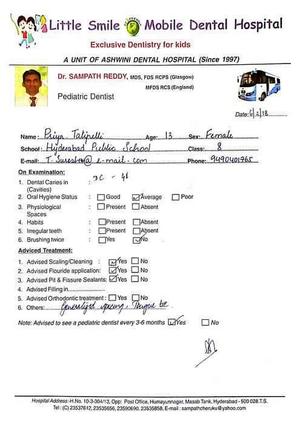 Little Smile Mobile Dental Hospital
Exclusive Dentistry for kids
A UNIT OF ASHWINI DENTAL HOSPITAL (Since 1997)
Dr. SAMPATH REDDY, MDS, FDS RCPS (Glasgow)
MFDS RCS (England)
Pediatric Dentist
Date:
Name: Priya Age: 13 Sex: Female
School: Hyderabad Public School Class: 8
E-mail: Phone:
On Examination:
1. Dental Caries in : DC - 46
(Cavities)
2. Oral Hygiene Status : Good Average Poor
3. Physiological : Present Absent
Spaces
4. Habits : Present Absent
5. Irregular teeth : Present Absent
6. Brushing twice : Yes No
Adviced Treatment:
1. Advised Scaling/Cleaning : Yes No
2. Advised Flouride application: Yes No
3. Advised Pit & Fissure Sealants: Yes No
4. Advised Filling in
5. Advised Orthodontic treatment: Yes No
6. Others: Generalized spacing, Tongue tie
Note: Advised to see a pediatric dentist every 3-6 months Yes No
Hospital Address-H.No. 10-3-304/13, Opp: Post Office, Humayunnagar, Masab Tank, Hyderabad - 500 028 T.S.
Tel: (C) 23537612, 23535656, 23590690, 23635858, E-mail : sampathcheruku@yahoo.com